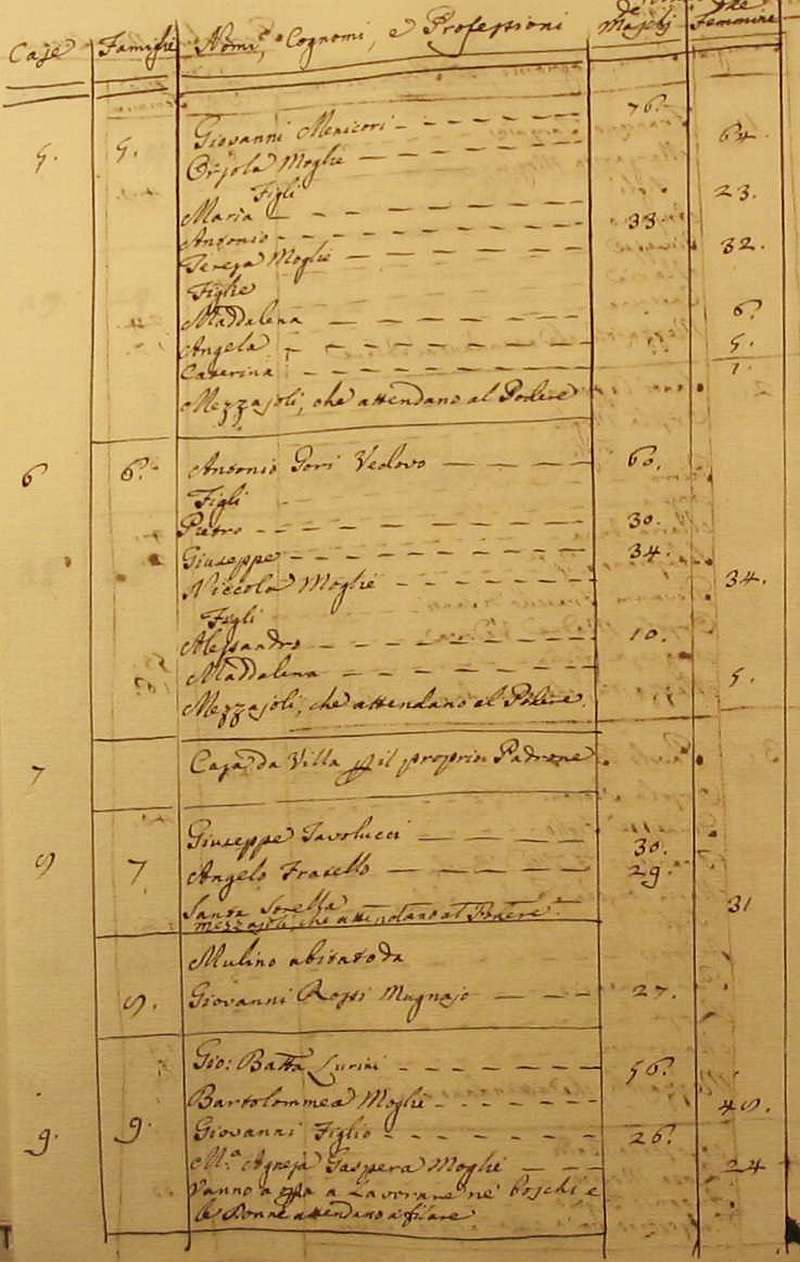 Case Famiglie Nomi, Cognomi, e Professioni de Maschj Femmine
5. 5. Giovanni 76.
Orsola Moglie 64.
Figli
Maria 23.
Antonio 33.
Teresa Moglie 32.
Figlie
Maddalena 6.
Angela 5.
Caterina 1.
Mezzajoli, che attendano al Podere
6 6. Antonio Gori Vedovo 60.
Figli
Pietro 30.
Giuseppe 34.
Niccola Moglie 34.
Figli
Alessandro 10.
Maddalena 5.
Mezzajoli, che attendano al Podere.
7 Casa da Villa il proprio Padrone
8 7 Giuseppe Tavolucci 30.
Angelo Fratello 29.
Santa Sorella 31
Mezzajoli, che attendano al Podere.
Mulino abitato da
8. Giovanni Rossi Mugnajo 27.
Gio: Batta 56.
Bartolommea Moglie 48.
9. 9. Giovanni Figlio 26.
M.a Agnesa Gaspera Moglie 24
Vanno a a Lavorare ne' Boschi e
le Donne attendano a filare